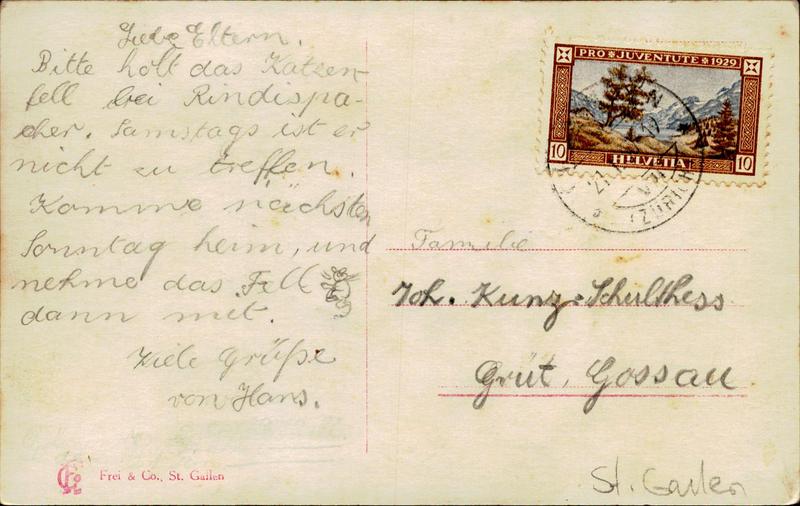 Liebe Eltern.
Bitte holt das Katzen-
fell bei Rindispa-
cher. Samstags ist er
nicht zu treffen.
Komme nächsten
Sonntag heim, und
nehme das Fell
dann mit.
Viele Grüße
von Hans.
Frei & Co., St. Gallen
PRO JUVENTUTE 1929
10 HELVETIA 10
(ZÜRICH)
Familie
Joh. Kunz-Schulthess
Grüt, Gossau
St. Gallen